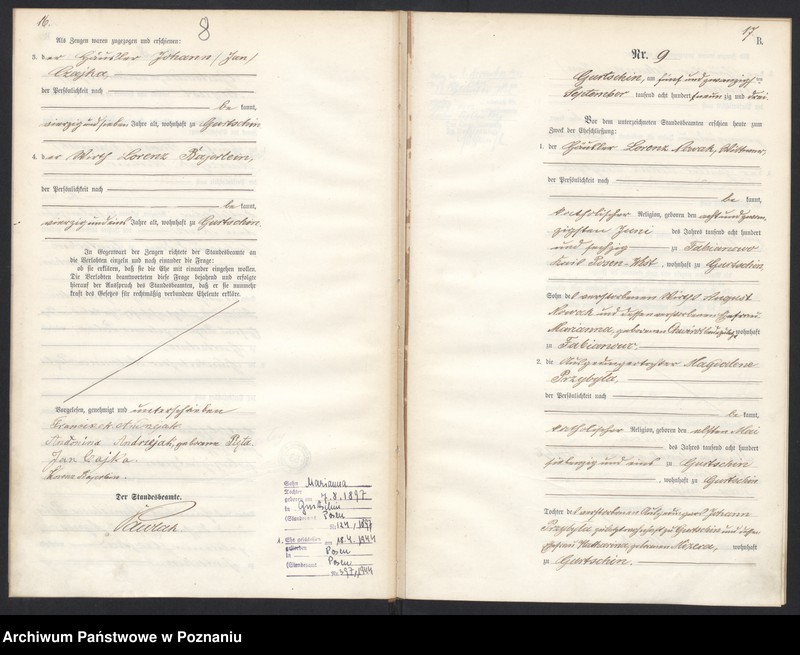 16.
8
Als Zeugen waren zugezogen und erschienen:
3. der Häusler Johann /Jan/
Czajka,
der Persönlichkeit nach
be kannt,
vierzig und sieben Jahre alt, wohnhaft zu Gurtschin
4. der Wirth Lorenz Bajerlein,
der Persönlichkeit nach
be kannt,
vierzig und eins Jahre alt, wohnhaft zu Gurtschin.
In Gegenwart der Zeugen richtete der Standesbeamte an
die Verlobten einzeln und nach einander die Frage:
ob sie erklären, daß sie die Ehe mit einander eingehen wollen.
Die Verlobten beantworteten diese Frage bejahend und erfolgte
hierauf der Ausspruch des Standesbeamten, daß er sie nunmehr
kraft des Gesetzes für rechtmäßig verbundene Eheleute erkläre.
Vorgelesen, genehmigt und unterschrieben
Franciszek
Antonina geborene
Jan Czajka.
Bajerlein.
Der Standesbeamte.
Sohn
Tochter Marianna
geboren am 7.8.1897
in Gurtschin
(Standesamt Posen
Nr. 124/1897
1. Ehe
am 18.4.1944
in Posen
(Standesamt Posen
Nr. 397/1944
17.
B.
Nr. 9
Gurtschin, am fünf und zwanzigsten
September tausend acht hundert neun zig und drei
Vor dem unterzeichneten Standesbeamten erschienen heute zum
Zweck der Eheschließung:
1. der Häusler Lorenz Nowak, Wittwer,
der Persönlichkeit nach
be kannt,
katholischer Religion, geboren den acht und zwan-
zigsten Juni des Jahres tausend acht hundert
und sechzig zu Fabianowo
Kreis Posen-West, wohnhaft zu Gurtschin
Sohn des verstorbenen Wirths August
Nowak und dessen verstorbenen Ehefrau
Marianna, geborenen wohnhaft
zu Fabianowo.
2. die Magdalena
Przybyła,
der Persönlichkeit nach
be kannt,
katholischer Religion, geboren den elften Mai
des Jahres tausend acht hundert
siebenzig und eins zu Gurtschin
, wohnhaft zu Gurtschin
Tochter des verstorbenen Johann
Przybyła zuletzt wohnhaft zu Gurtschin und dessen
Ehefrau Katharina, geborenen wohnhaft
zu Gurtschin.
Archiwum Państwowe w Poznaniu